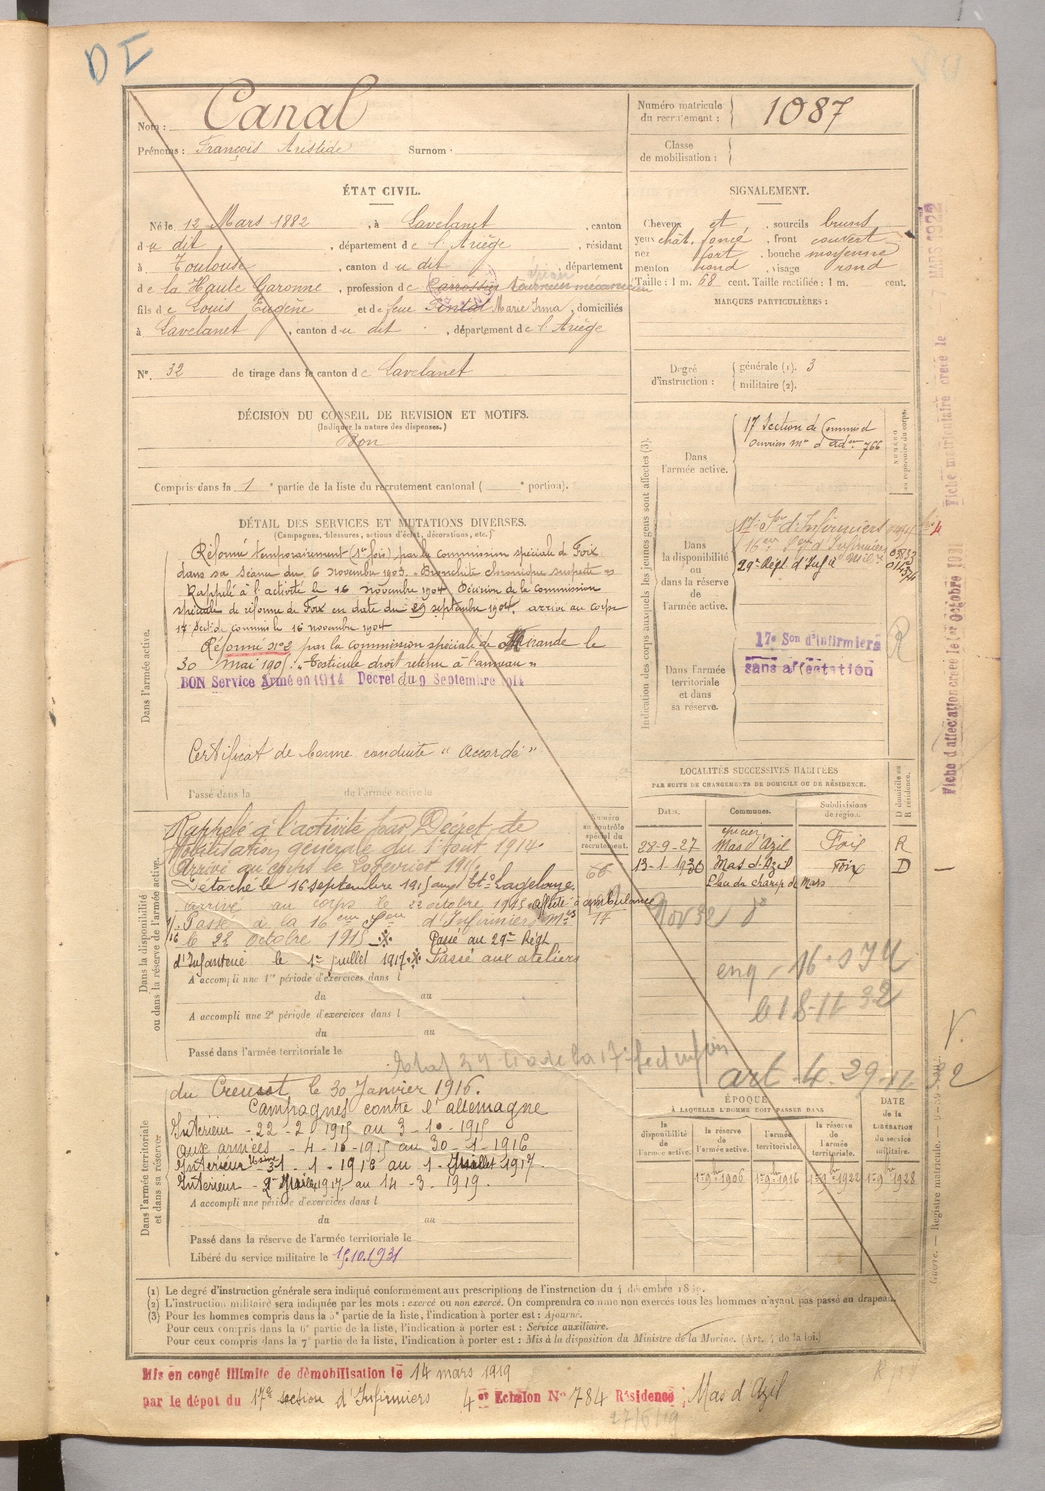 DI
Nom : Canal
Prénoms : François Aristide Surnom :
Numéro matricule du recrutement : 1087
Classe de mobilisation :
ÉTAT CIVIL.
Né le 12 Mars 1882, à Lavelanet, canton
du dit, département de l'Ariège, résidant
à Toulouse, canton du dit, département
de la Haute Garonne, profession de Carrossier tourneur mécanicien
épicier
fils de Louis Eugène et de feue Marie Irma, domiciliés
à Lavelanet, canton du dit, département de l'Ariège
N° 32 de tirage dans le canton de Lavelanet
SIGNALEMENT.
Cheveux et, sourcils bruns
yeux chât. foncé, front couvert
nez fort, bouche moyenne
menton rond, visage rond
Taille : 1 m. 68 cent. Taille rectifiée : 1 m. cent.
MARQUES PARTICULIÈRES :
Degré d'instruction : générale (1). 3
militaire (2).
DÉCISION DU CONSEIL DE REVISION ET MOTIFS.
(Indiquer la nature des dispenses.)
Bon
Compris dans la 1e partie de la liste du recrutement cantonal ( e portion).
DÉTAIL DES SERVICES ET MUTATIONS DIVERSES.
(Campagnes, blessures, actions d'éclat, décorations, etc.)
Dans l'armée active.
Réformé temporairement (1re fois) par la commission spéciale de Foix
dans sa séance du 6 novembre 1903. "Bronchite chronique suspecte"
Rappelé à l'activité le 16 novembre 1904 Décision de la commission
spéciale de réforme de Foix en date du 29 septembre 1904. arrivé au corps
17 Sect. de commis le 16 novembre 1904
Réformé n° 2 par la commission spéciale de Mirande le
30 mai 1905. "Testicule droit retenu à l'anneau"
BON Service Armé en 1914 Decret du 9 Septembre 1914
Certificat de bonne conduite "Accordé"
Passé dans la de l'armée active le
Indication des corps auxquels les jeunes gens sont affectés (3).
Dans l'armée active.
17 Section de Commis d
ouvriers mre d adon 766
Dans la disponibilité ou dans la réserve de l'armée active.
17e Son d'Infirmiers
16eme Son d'Infirmiers
29e Régt d'Infie
Dans l'armée territoriale et dans sa réserve.
17e Son d'Infirmiers
sans affectation
R
MARS 1922
Fiche matriculaire créée le
Fiche d'affectation créée le 1er Octobre 1931
LOCALITÉS SUCCESSIVES HABITÉES
PAR SUITE DE CHANGEMENTS DE DOMICILE OU DE RÉSIDENCE.
Dates. Communes. Subdivisions de région. D domicile ou R résidence.
épicier
28-9-27 Mas d'Azil Foix R
13-1-1930 Mas d'Azil Foix D
Place du champ de Mars
Dans la disponibilité ou dans la réserve de l'armée active.
Numéro au contrôle spécial du recrutement.
Rappelé à l'activité par Décret de
Mobilisation générale du 1er Aout 1914.
Arrivé au corps le
Détaché le 16 septembre 1915
arrivé au corps le 22 octobre 1915 affecté à ambulance
Passé à la 16eme Son d'Infirmiers mres
le 22 octobre 1915 Passé au 29e Régt
d'Infanterie le 1er juillet 1917 Passé aux ateliers
A accompli une 1re période d'exercices dans l
du au
A accompli une 2e période d'exercices dans l
du au
Passé dans l'armée territoriale le
Nov 32
le 18-11 32
art. 4. 29-11 32
Dans l'armée territoriale et dans sa réserve
du Creusot, le 30 Janvier 1916.
Campagnes contre l'allemagne
Intérieur - 22-2-1915 au 3-10-1915
aux armées - 4-10-1915 au 30-1-1916
Intérieur 31-1-1916 au 1-Juillet 1917.
Intérieur - 2 Juillet 1917 au 14-3-1919.
A accompli une période d'exercices dans l
du au
Passé dans la réserve de l'armée territoriale le
Libéré du service militaire le 15.10.1931
ÉPOQUE
À LAQUELLE L'HOMME DOIT PASSER DANS
la disponibilité de l'armée active. la réserve de l'armée active. l'armée territoriale. la réserve de l'armée territoriale. DATE de la LIBÉRATION du service militaire.
1er 9bre 1906 1er 9bre 1916 1er 9bre 1922 1er 9bre 1928
(1) Le degré d'instruction générale sera indiqué conformément aux prescriptions de l'instruction du 4 décembre 1889.
(2) L'instruction militaire sera indiquée par les mots : exercé ou non exercé. On comprendra comme non exercés tous les hommes n'ayant pas passé au drapeau.
(3) Pour les hommes compris dans la 5e partie de la liste, l'indication à porter est : Ajourné.
Pour ceux compris dans la 6e partie de la liste, l'indication à porter est : Service auxiliaire.
Pour ceux compris dans la 7e partie de la liste, l'indication à porter est : Mis à la disposition du Ministre de la Marine. (Art. 4 de la loi.)
Mis en congé illimité de démobilisation le 14 mars 1919
par le dépot du 17e section d'Infirmiers 4e Echelon N° 784 Résidence : Mas d'Azil